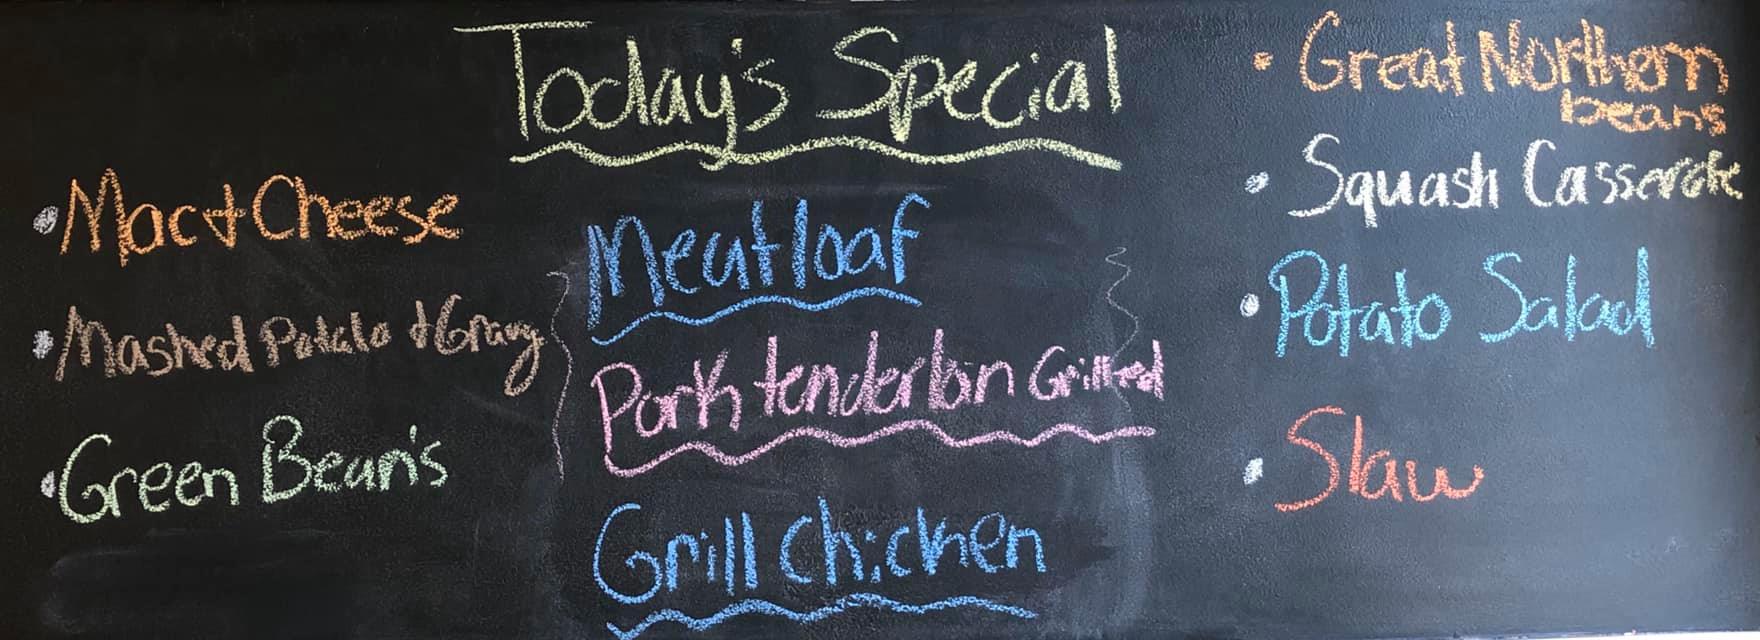 Today's Special
• Mac + Cheese
• Mashed Potato + Gravy
• Green Bean's
Meatloaf
Pork tenderloin Grilled
Grill chicken
• Great Northern
beans
• Squash Casserole
• Potato Salad
• Slaw